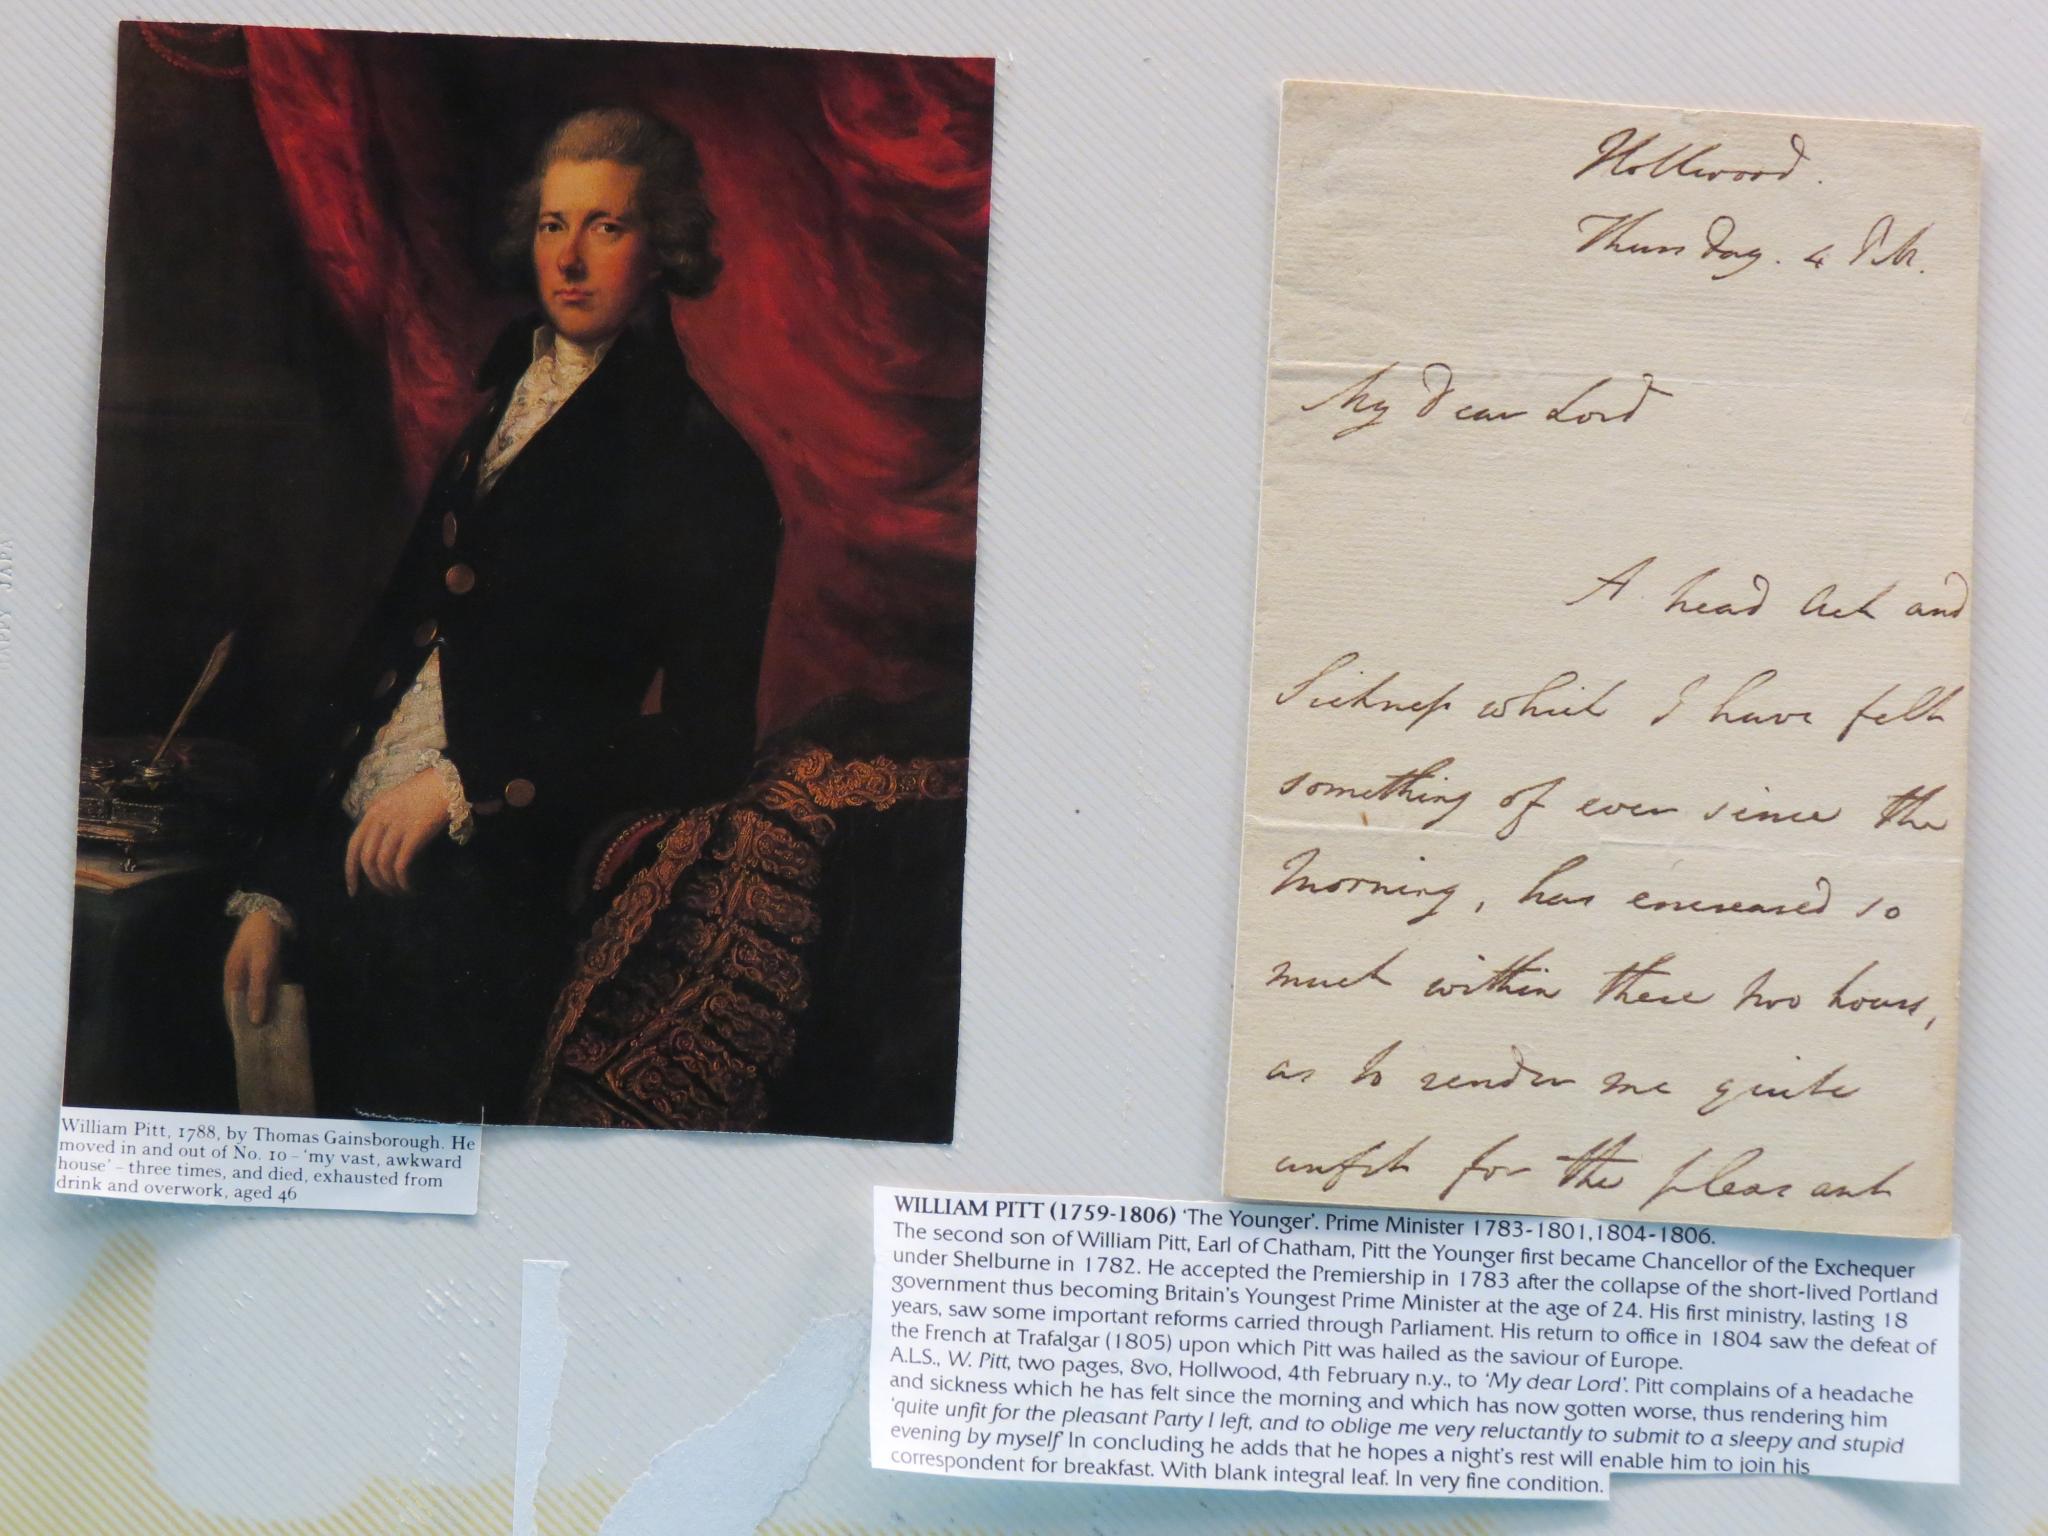 William Pitt, 1788, by Thomas Gainsborough. He
moved in and out of No. 10 – 'my vast, awkward
house' – three times, and died, exhausted from
drink and overwork, aged 46
Hollwood.
Thursday. 4 P M.
My Dear Lord
A head Ach and
Sickness which I have felt
something of ever since the
Morning, has encreased so
much within these two hours,
as to render me quite
unfit for the pleasant
WILLIAM PITT (1759-1806) 'The Younger'. Prime Minister 1783-1801,1804-1806.
The second son of William Pitt, Earl of Chatham, Pitt the Younger first became Chancellor of the Exchequer
under Shelburne in 1782. He accepted the Premiership in 1783 after the collapse of the short-lived Portland
government thus becoming Britain's Youngest Prime Minister at the age of 24. His first ministry, lasting 18
years, saw some important reforms carried through Parliament. His return to office in 1804 saw the defeat of
the French at Trafalgar (1805) upon which Pitt was hailed as the saviour of Europe.
A.L.S., W. Pitt, two pages, 8vo, Hollwood, 4th February n.y., to 'My dear Lord'. Pitt complains of a headache
and sickness which he has felt since the morning and which has now gotten worse, thus rendering him
'quite unfit for the pleasant Party I left, and to oblige me very reluctantly to submit to a sleepy and stupid
evening by myself' In concluding he adds that he hopes a night's rest will enable him to join his
correspondent for breakfast. With blank integral leaf. In very fine condition.